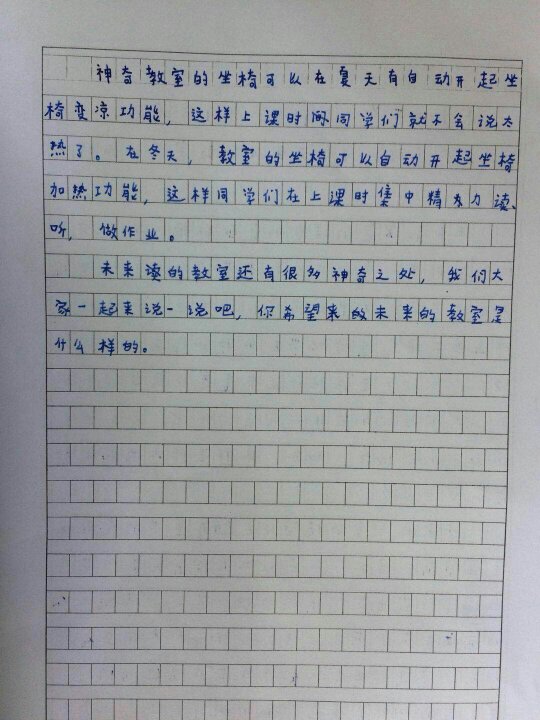 神奇教室的坐椅可以在夏天有自动开起坐
椅变凉功能，这样上课时间同学们就不会说太
热了。在冬天，教室的坐椅可以自动开起坐椅
加热功能，这样同学们在上课时集中精力读、
听，做作业。
未来读的教室还有很多神奇之处，我们大
家一起来说一说吧，你希望来的未来的教室是
什么样的。